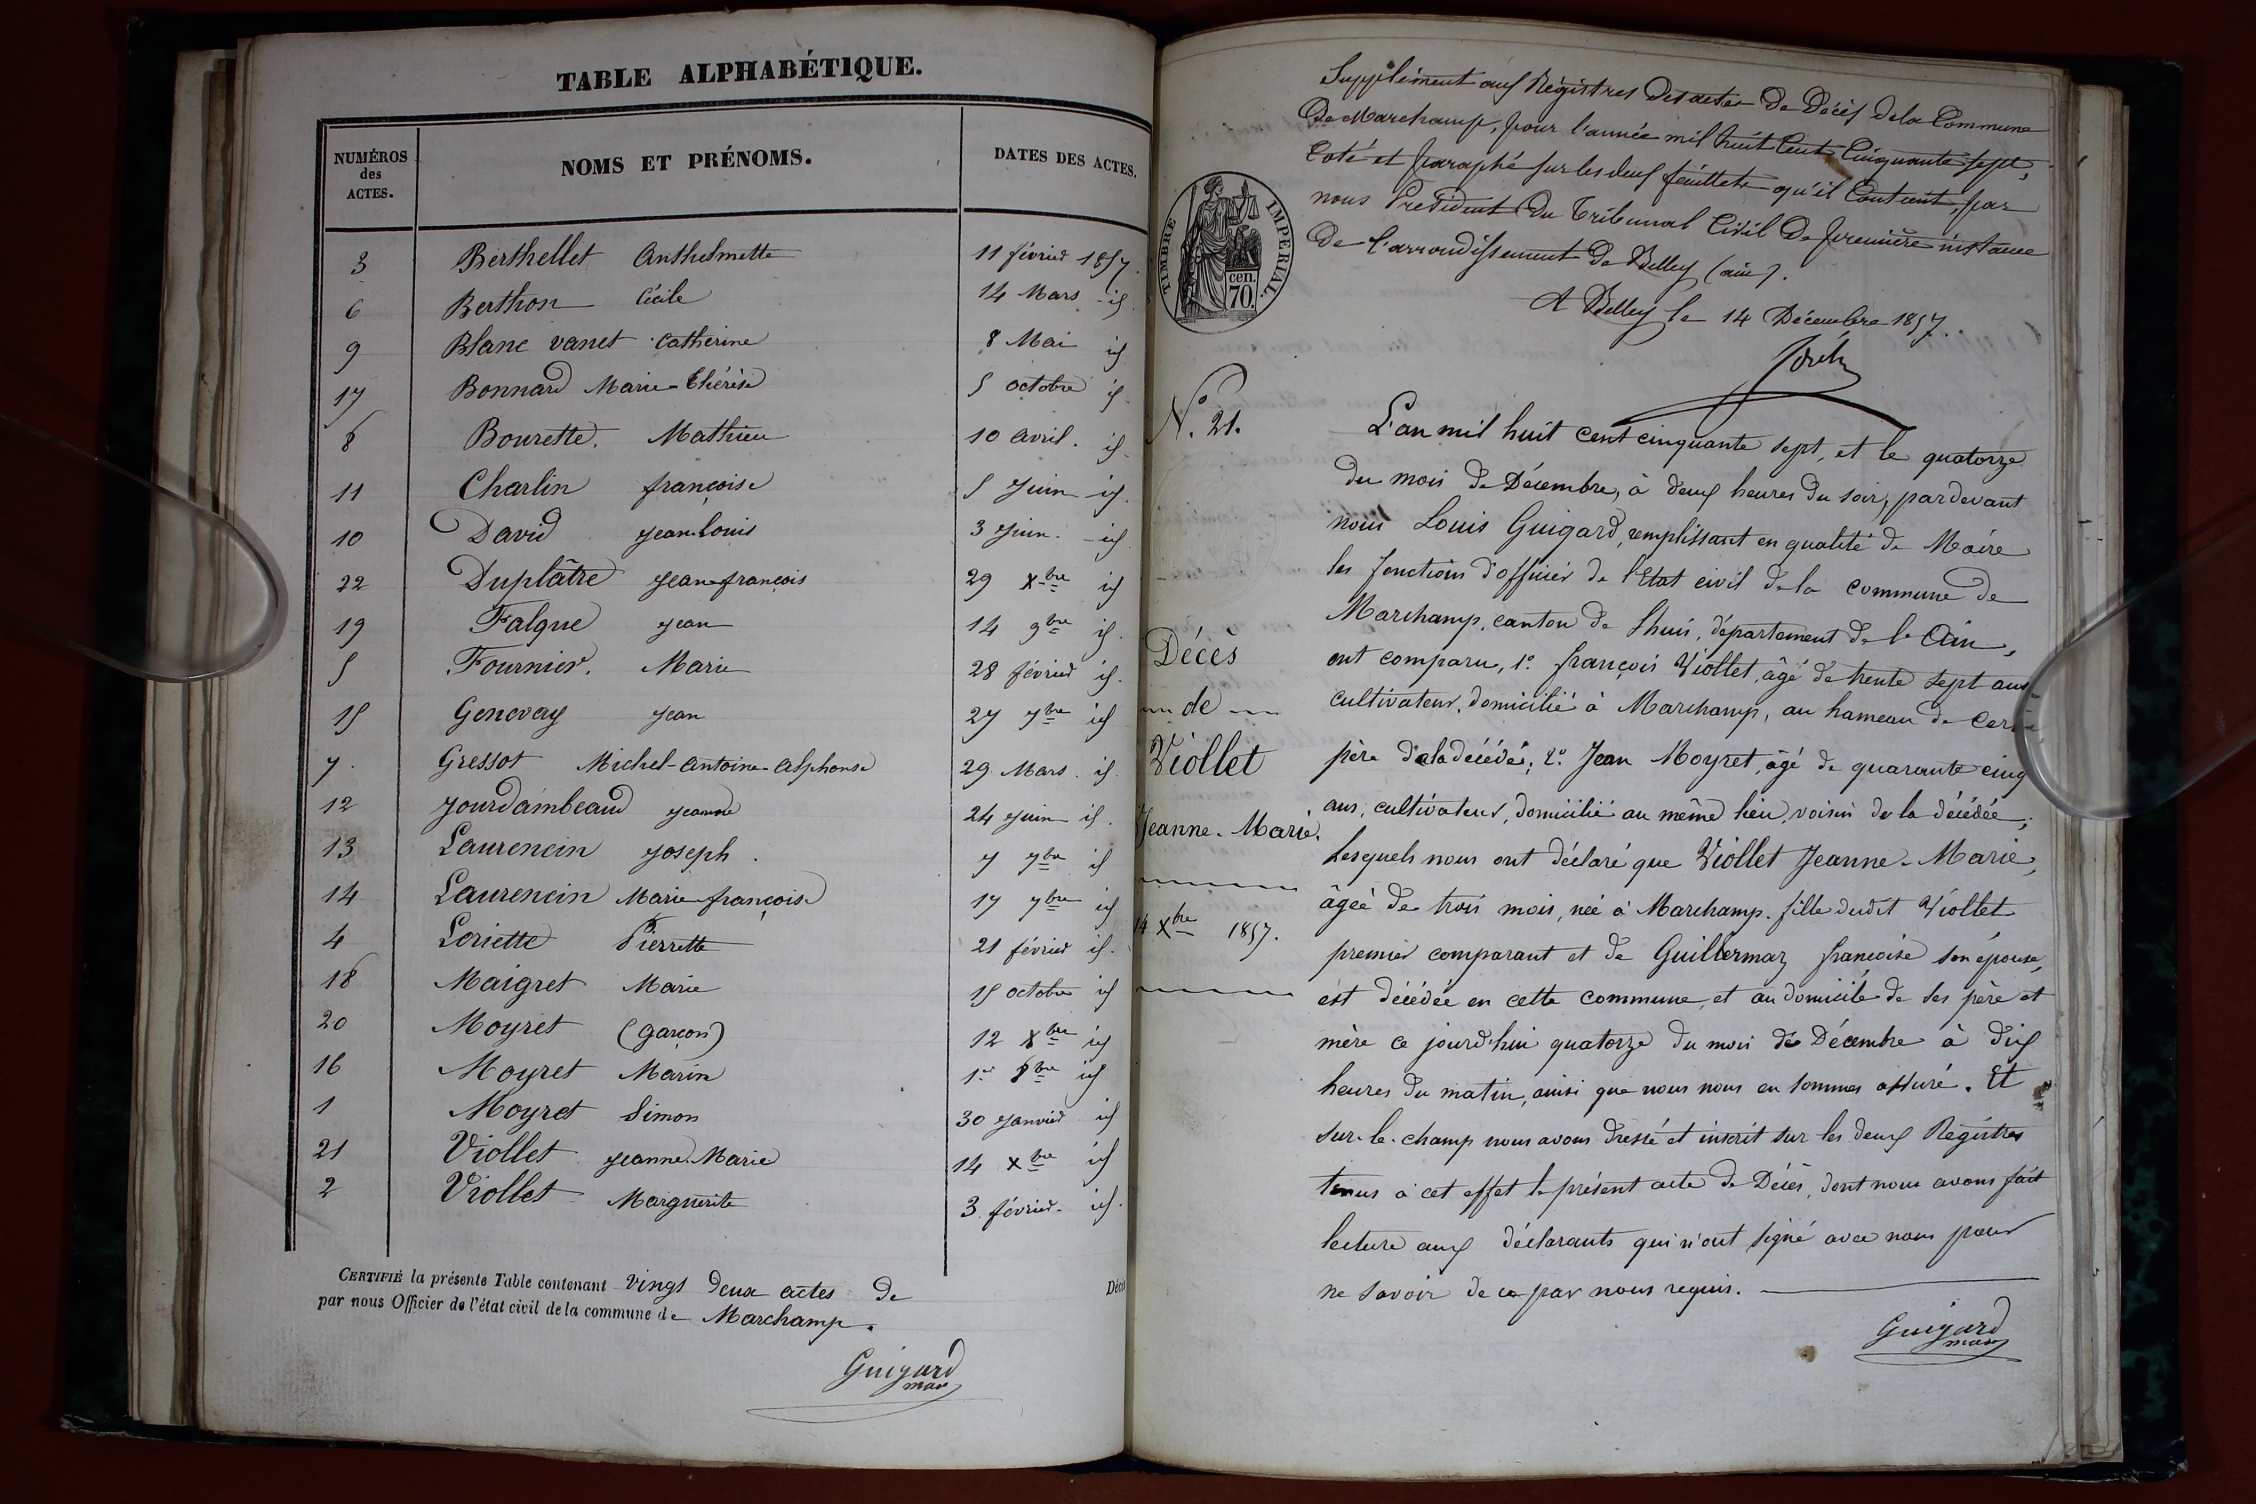 TABLE ALPHABÉTIQUE.
NUMÉROS des ACTES. NOMS ET PRÉNOMS. DATES DES ACTES.
3 Berthellet Anthelmette 11 février 1857.
6 Berthon Cécile 14 Mars id
9 Blanc vanet Catherine 8 Mai id
17 Bonnard Marie-Thérèse 5 octobre id.
8 Bourette. Mathieu 10 avril. id.
11 Charlin françoise 5 Juin id.
10 David Jean-Louis 3 Juin. id.
22 Duplâtre Jean-françois 29 Xbre id
19 Falque Jean 14 9bre id.
5 Fournier. Marie 28 février id.
15 Genevay Jean 27 7bre id
7. Gressot Michel-Antoine-Alphonse 29 Mars. id.
12 Jourdambeaud Jeanne 24 Juin id.
13 Laurencin Joseph. 7 7bre id
14 Laurencin Marie-françoise 17 7bre id
4 Loriette Pierrette 21 février id.
18 Maigret Marie 15 octobre id
20 Moyret (garçon) 12 Xbre id
16 Moyret Marin 1er 8bre id
1 Moyret Simon 30 Janvier id
21 Viollet Jeanne-Marie 14 Xbre id
2 Viollet Marguerite 3 février. id.
CERTIFIÉ la présente Table contenant vingt deux actes de Décès
par nous Officier de l'état civil de la commune de Marchamp.
Guigard
maire
Supplément aux Régistres des actes de Décès de la Commune
de Marchamp, pour l'année mil huit Cent Cinquante sept,
Coté et paraphé sur les deux feuillets qu'il Contient, par
nous Président du Tribunal Civil de première instance
de l'arrondissement de Belley (ain).
A Belley le 14 Décembre 1857.
TIMBRE IMPÉRIAL.
cen.
70.
No. 21.
Décès
de
Viollet
Jeanne-Marie.
14 Xbre 1857.
L'an mil huit cent cinquante sept, et le quatorze
du mois de Décembre, à deux heures du soir, pardevant
nous Louis Guigard, remplissant en qualité de Maire
les fonctions d'officier de l'Etat civil de la commune de
Marchamp, canton de Lhuis, département de l'Ain,
ont comparu, 1o. françois Viollet, âgé de trente sept ans
cultivateur, domicilié à Marchamp, au hameau de
père de la décédée; 2o. Jean Moyret, âgé de quarante cinq
ans, cultivateur, domicilié au même lieu, voisin de la décédée;
Lesquels nous ont déclaré que Viollet Jeanne-Marie,
âgée de trois mois, née à Marchamp. fille dudit Viollet
premier comparant et de Guillermaz françoise son épouse,
est décédée en cette commune, et au domicile de ses père et
mère ce jourd'hui quatorze du mois de Décembre à dix
heures du matin, ainsi que nous nous en sommes assuré. Et
sur-le-champ nous avons dressé et inscrit sur les deux Régistres
tenus à cet effet le présent acte de Décès, dont nous avons fait
lecture aux déclarants qui n'ont signé avec nous pour
ne savoir de ce par nous requis.
Guigard
maire